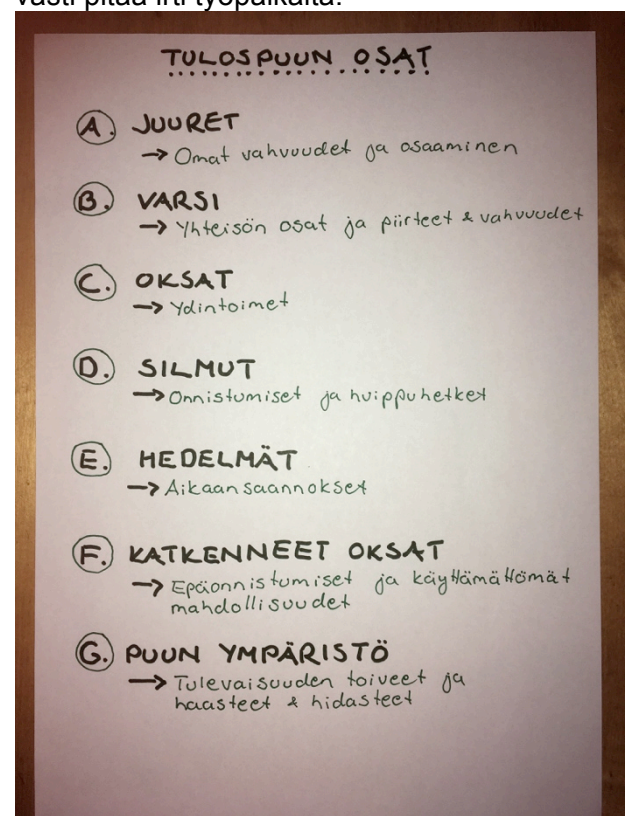 västi pitää irti työpaikalta.
TULOSPUUN OSAT
A. JUURET
→ Omat vahvuudet ja osaaminen
B. VARSI
→ Yhteisön osat ja piirteet & vahvuudet
C. OKSAT
→ Ydintoimet
D. SILMUT
→ Onnistumiset ja huippuhetket
E. HEDELMÄT
→ Aikaansaannokset
F. KATKENNEET OKSAT
→ Epäonnistumiset ja käyttämättömät
mahdollisuudet
G. PUUN YMPÄRISTÖ
→ Tulevaisuuden toiveet ja
haasteet & hidasteet